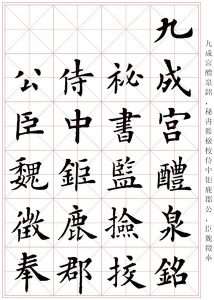 九成宫醴泉銘，秘書監檢校侍中鉅鹿郡公，臣魏徵奉
九成宮醴泉銘
祕書監撿挍
侍中鉅鹿郡
公臣魏徵奉